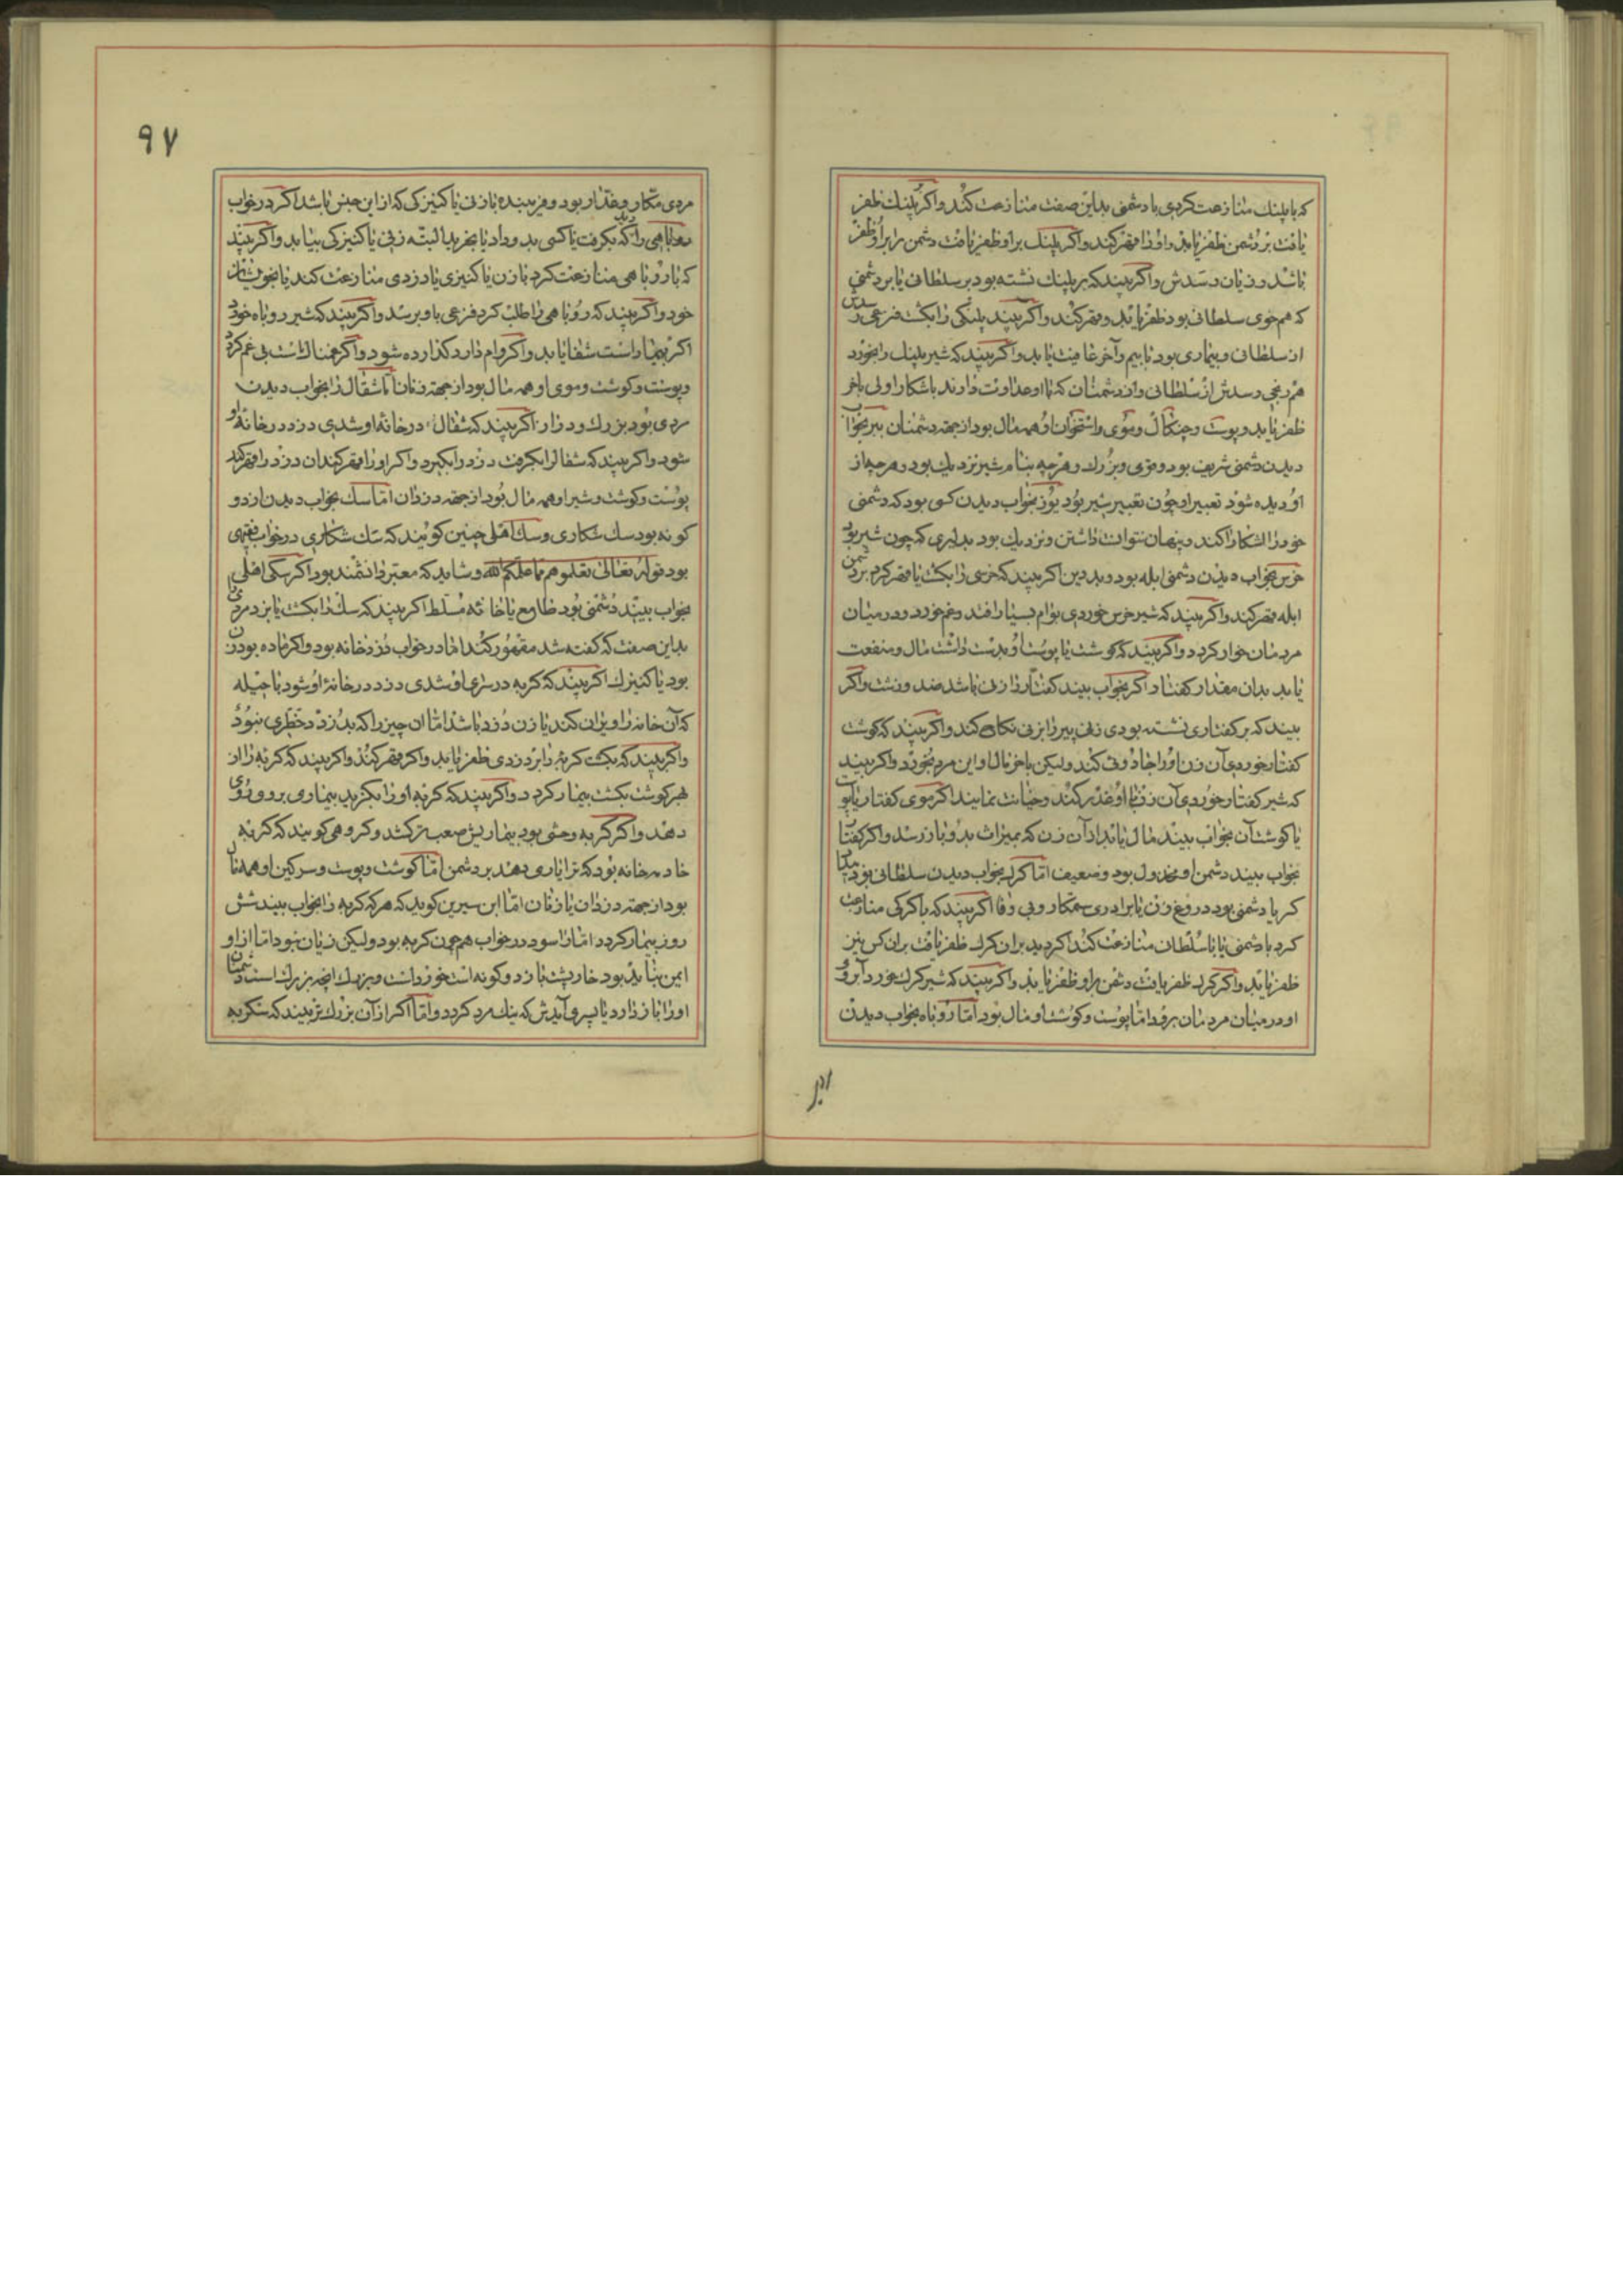 که با پلنك منازعت کردی با دشمنی بداین صفت منازعت کند واکر پلنك ظفر
یافت بر دشمن ظفر یابد واورا قهر کند واکر پلنك براو ظفر یافت دشمن مر براو ظفر
باشد وزیان رسدش واکر بیند که بر پلنك نشسته بود بر سلطانی یا بر دشمنی
که هم خوی سلطانی بود ظفر یابد وقهر کند واکر بیند پلنکی را بکشت فزعی رسدش
از سلطانی وبیماری بود تا بیم وآخر عافیت یابد واکر بیند که شیر پلنك را بخورد
هم رنجی رسدش از سلطانی واز دشمنان که با او عداوت دارند باشکارا ولی باخر
ظفر یابد وپوست وچنکال وموی واستخوان او همه مال بود از جهة دشمنان ببر بخواب
دیدن دشمنی شریف بود وقوی وبزرك وهرچه بنام شیر نزدیك بود وهرچه از
او دیده شود تعبیر او چون تعبیر شیر بود یوز بخواب دیدن کسی بود که دشمنی
خود را اشکارا کند وپنهان نتواند داشتن ونزدیك بود بدلیری که چون شیر بود
خرس بخواب دیدن دشمنی ابله بود وبد دین اکر بیند که خرسی را بکشت یا قهر کرد بر دشمن
ابله قهر کند واکر بیند که شیر خرس خوردی بوام بسیار افتد وغم خورد ودر میان
مردمان خوار کردد واکر بیند که کوشت یا پوست او بدست داشت مال ومنفعت
یابد بدان مقدار کفتار اکر بخواب بیند کفتار را زنی باشد وزشت واکر
بیند که بر کفتاری نشسته بودی زنی پیر را بزنی نکاح کند واکر بیند که کوشت
کفتار خوردی آن زن اورا جادوئی کند ولیکن باخر مال او این مرد بخورد واکر بیند
که شیر کفتار خوردی آن زن با او غدر کند وخیانت نماید اکر موی کفتار یا پوست
یا کوشت آن بخواب بیند مال یابد از آن زن که بمیراث بدو باز رسد واکر کفتار
بخواب بیند دشمن او مخذول بود وضعیف اما کرك بخواب دیدن سلطانی بود
کر یا دشمنی بود دروغ زن یا برادری ستمکار وبی وفا اکر بیند که با کرکی منازعت
کرد با دشمنی یا با سلطان منازعت کند اکر دید بران کرك ظفر یافت بران کس نیز
ظفر یابد واکر کرك ظفر یافت دشمن براو ظفر یابد واکر بیند که شیر کرك خورد آبروی
او در میان مردمان برود اما پوست وکوشت او مال بود اما روباه بخواب دیدن
۹۷
مردی مکار وغدار بود وفریبنده با زنی یا کنیزکی که از این جنس باشد اکر در خواب دید
روباهی را که بکرفت یا کسی بدو داد یا بخرید البته زنی یا کنیزکی بیابد واکر بیند
که با روباهی منازعت کرد با زن یا کنیزی یا دزدی منازعت کند یا بخویشان
خود واکر بیند که روباهی را طلب کرد فزعی باو برسد واکر بیند که شیر روباه خورد
اکر بیمار است شفا یابد واکر وام دارد کذارده شود واکر غمناك است بی غم کردد
وپوست وکوشت وموی او همه مال بود از جهة زنان اما شغال را بخواب دیدن
مردی بود بزرك ودزد اکر بیند که شغال در خانۀ او شدی دزد در خانۀ او
شود واکر بیند که شغال را بکرفت دزد را بکیرد واکر اورا قهر کند ان دزد را قهر کند
پوست وکوشت وشیر او همه مال بود از جهة دزدان اما سك بخواب دیدن از دو
کونه بود سك شکاری وسك اهلی چنین کویند که سك شکاری در خواب فقیهی
بود قوله تعالی تعلمونهن مما علمکم الله وشاید که معتبر دانشمند بود اکر سکی اهلی را
بخواب بیند دشمنی بود طامع یا خانه مسلط اکر بیند که سك را بکشت یا بزد مردی
بداین صفت که کفته شد مقهور کند اما در خواب دزد خانه بود واکر ماده بود زن
بود یا کنیزك اکر بیند که کربه در سرای او شدی دزد در خانۀ او شود تا حیله
که آن خانه را ویران کند یا زن دزد باشد اما ان چیز را که بدزدد خطری نبود
واکر بیند که بکشت کربه را بر دزدی ظفر یابد واکر قهر کند واکر بیند که کربه را از
بهر کوشت بکشت بیمار کردد واکر بیند که کربه اورا بکزید بیماری بر وی روی
دهد واکر کربه وحشی بود بیماریش صعب تر کشد وکروهی کویند که کربه
خادم خانه بود که ترا یاری دهد بر دشمن اما کوشت وپوست وسرکین او همه مال
بود از جهة دزدان یا زنان اما ابن سیرین کوید که هر که کربه را بخواب بیند شش
روز بیمار کردد اما راسو در خواب هم چون کربه بود ولیکن زیان نبود اما از او
ایمن نباید بود خارپشت باز دو کونه است خورد است وبزرك انچه بزرك است دشمنان
اورا باز دارد یا پسر آیدش که نیك مرد کردد واما اکر از آن بزرك تر بیند که سنکربه